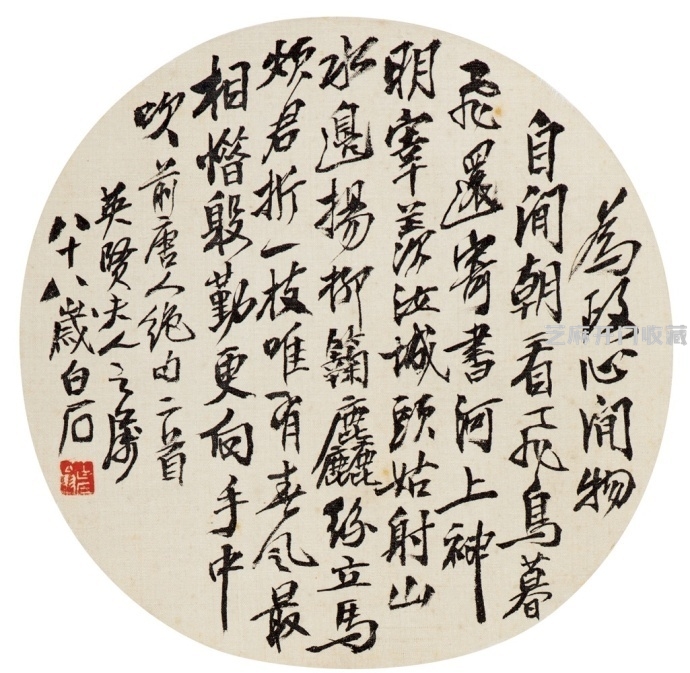 為政心閒物
自閒朝看飛鳥暮
飛還寄書河上神
明宰羨汝城頭姑射山
水邊楊柳麴塵絲立馬
煩君折一枝唯有春風最
相惜殷勤更向手中
吹 前唐人絕句二首
英賢夫人之屬
八十八歲白石
芝麻开门收藏